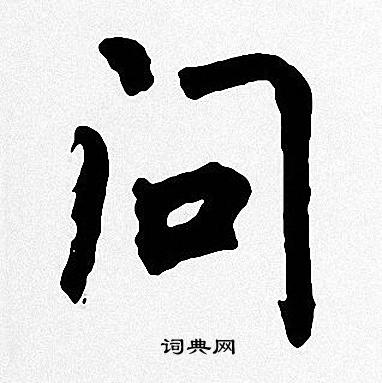 问
词典网